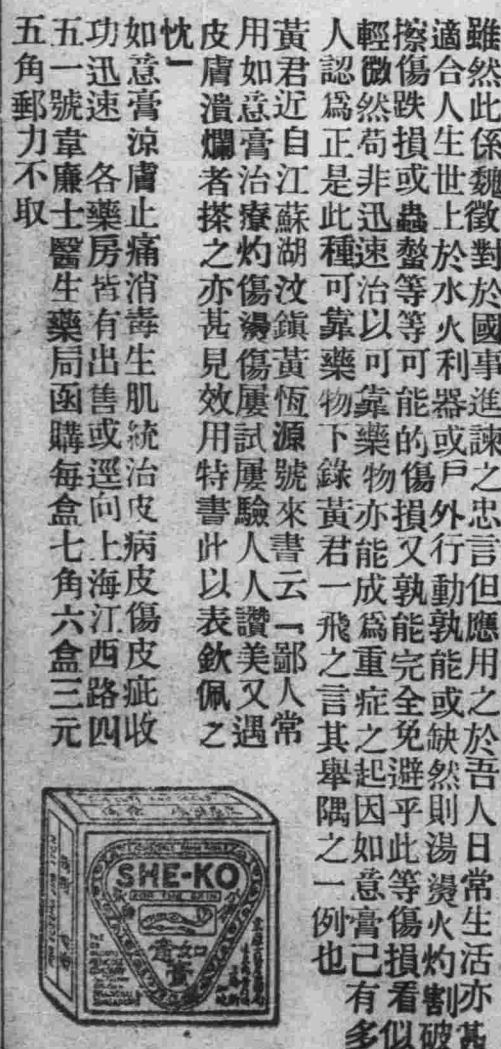 雖然此係魏徵對於國事進諫之忠言但應用之於吾人日常生活亦甚
適合人生世上於水火利器或戶外行動孰能或缺然則湯燙火灼割破
擦傷跌損或蟲螫等等可能的傷損又孰能完全免避乎此等傷損看似
輕微然苟非迅速治以可靠藥物亦能成為重症之起因如意膏己有多
人認爲正是此種可靠藥物下錄黃君一飛之言其舉隅之一例也
黃君近自江蘇湖汶鎮黃恆源號來書云「鄙人常
用如意膏治療灼傷燙傷屢試屢驗人人讚美又遇
皮膚潰爛者搽之亦甚見效用特書此以表欽佩之
忱」
如意膏涼膚止痛消毒生肌統治皮病皮傷皮疵收
功迅速 各藥房皆有出售或逕向上海江西路四
五一號韋廉士醫生藥局函購每盒七角六盒三元
五角郵力不取
SHE-KO
FOR THE SKIN
如意膏